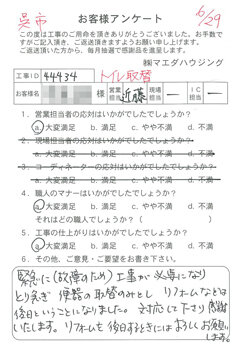 呉市
お客様アンケート
6/29
この度は工事のご用命を頂きありがとうございました。お手数で
すがご記入頂き、ご返送頂きますようお願い申し上げます。
ご返送頂いた方から、毎月抽選で感謝品を進呈します。
㈱マエダハウジング
工事ID 44434 トイレ取替
お客様名 様 営業担当 近藤 現場担当 ー IC担当 ー
1. 営業担当者の応対はいかがでしたでしょうか?
a.大変満足 b. 満足 c. やや不満 d. 不満
2. 現場担当者の応対はいかがでしたでしょうか?
a.大変満足 b. 満足 c. やや不満 d. 不満
3. コーディネーターの応対はいかがでしたでしょうか?
a.大変満足 b. 満足 c. やや不満 d. 不満
4. 職人のマナーはいかがでしたでしょうか?
a.大変満足 b. 満足 c. やや不満 d. 不満
それはどの職人でしょうか?(
5. 工事の仕上がりはいかがでしたでしょうか?
a.大変満足 b. 満足 c. やや不満 d. 不満
6. その他、ご意見・ご要望をお書き下さい。
緊急に(故障のため)工事が必要になり
とり急ぎ 便器の取替のみとし リフォームなどは
後日ということになりました。対応して下さり感謝
いたします。リフォームを後日するときにはよろしくお願い
します。